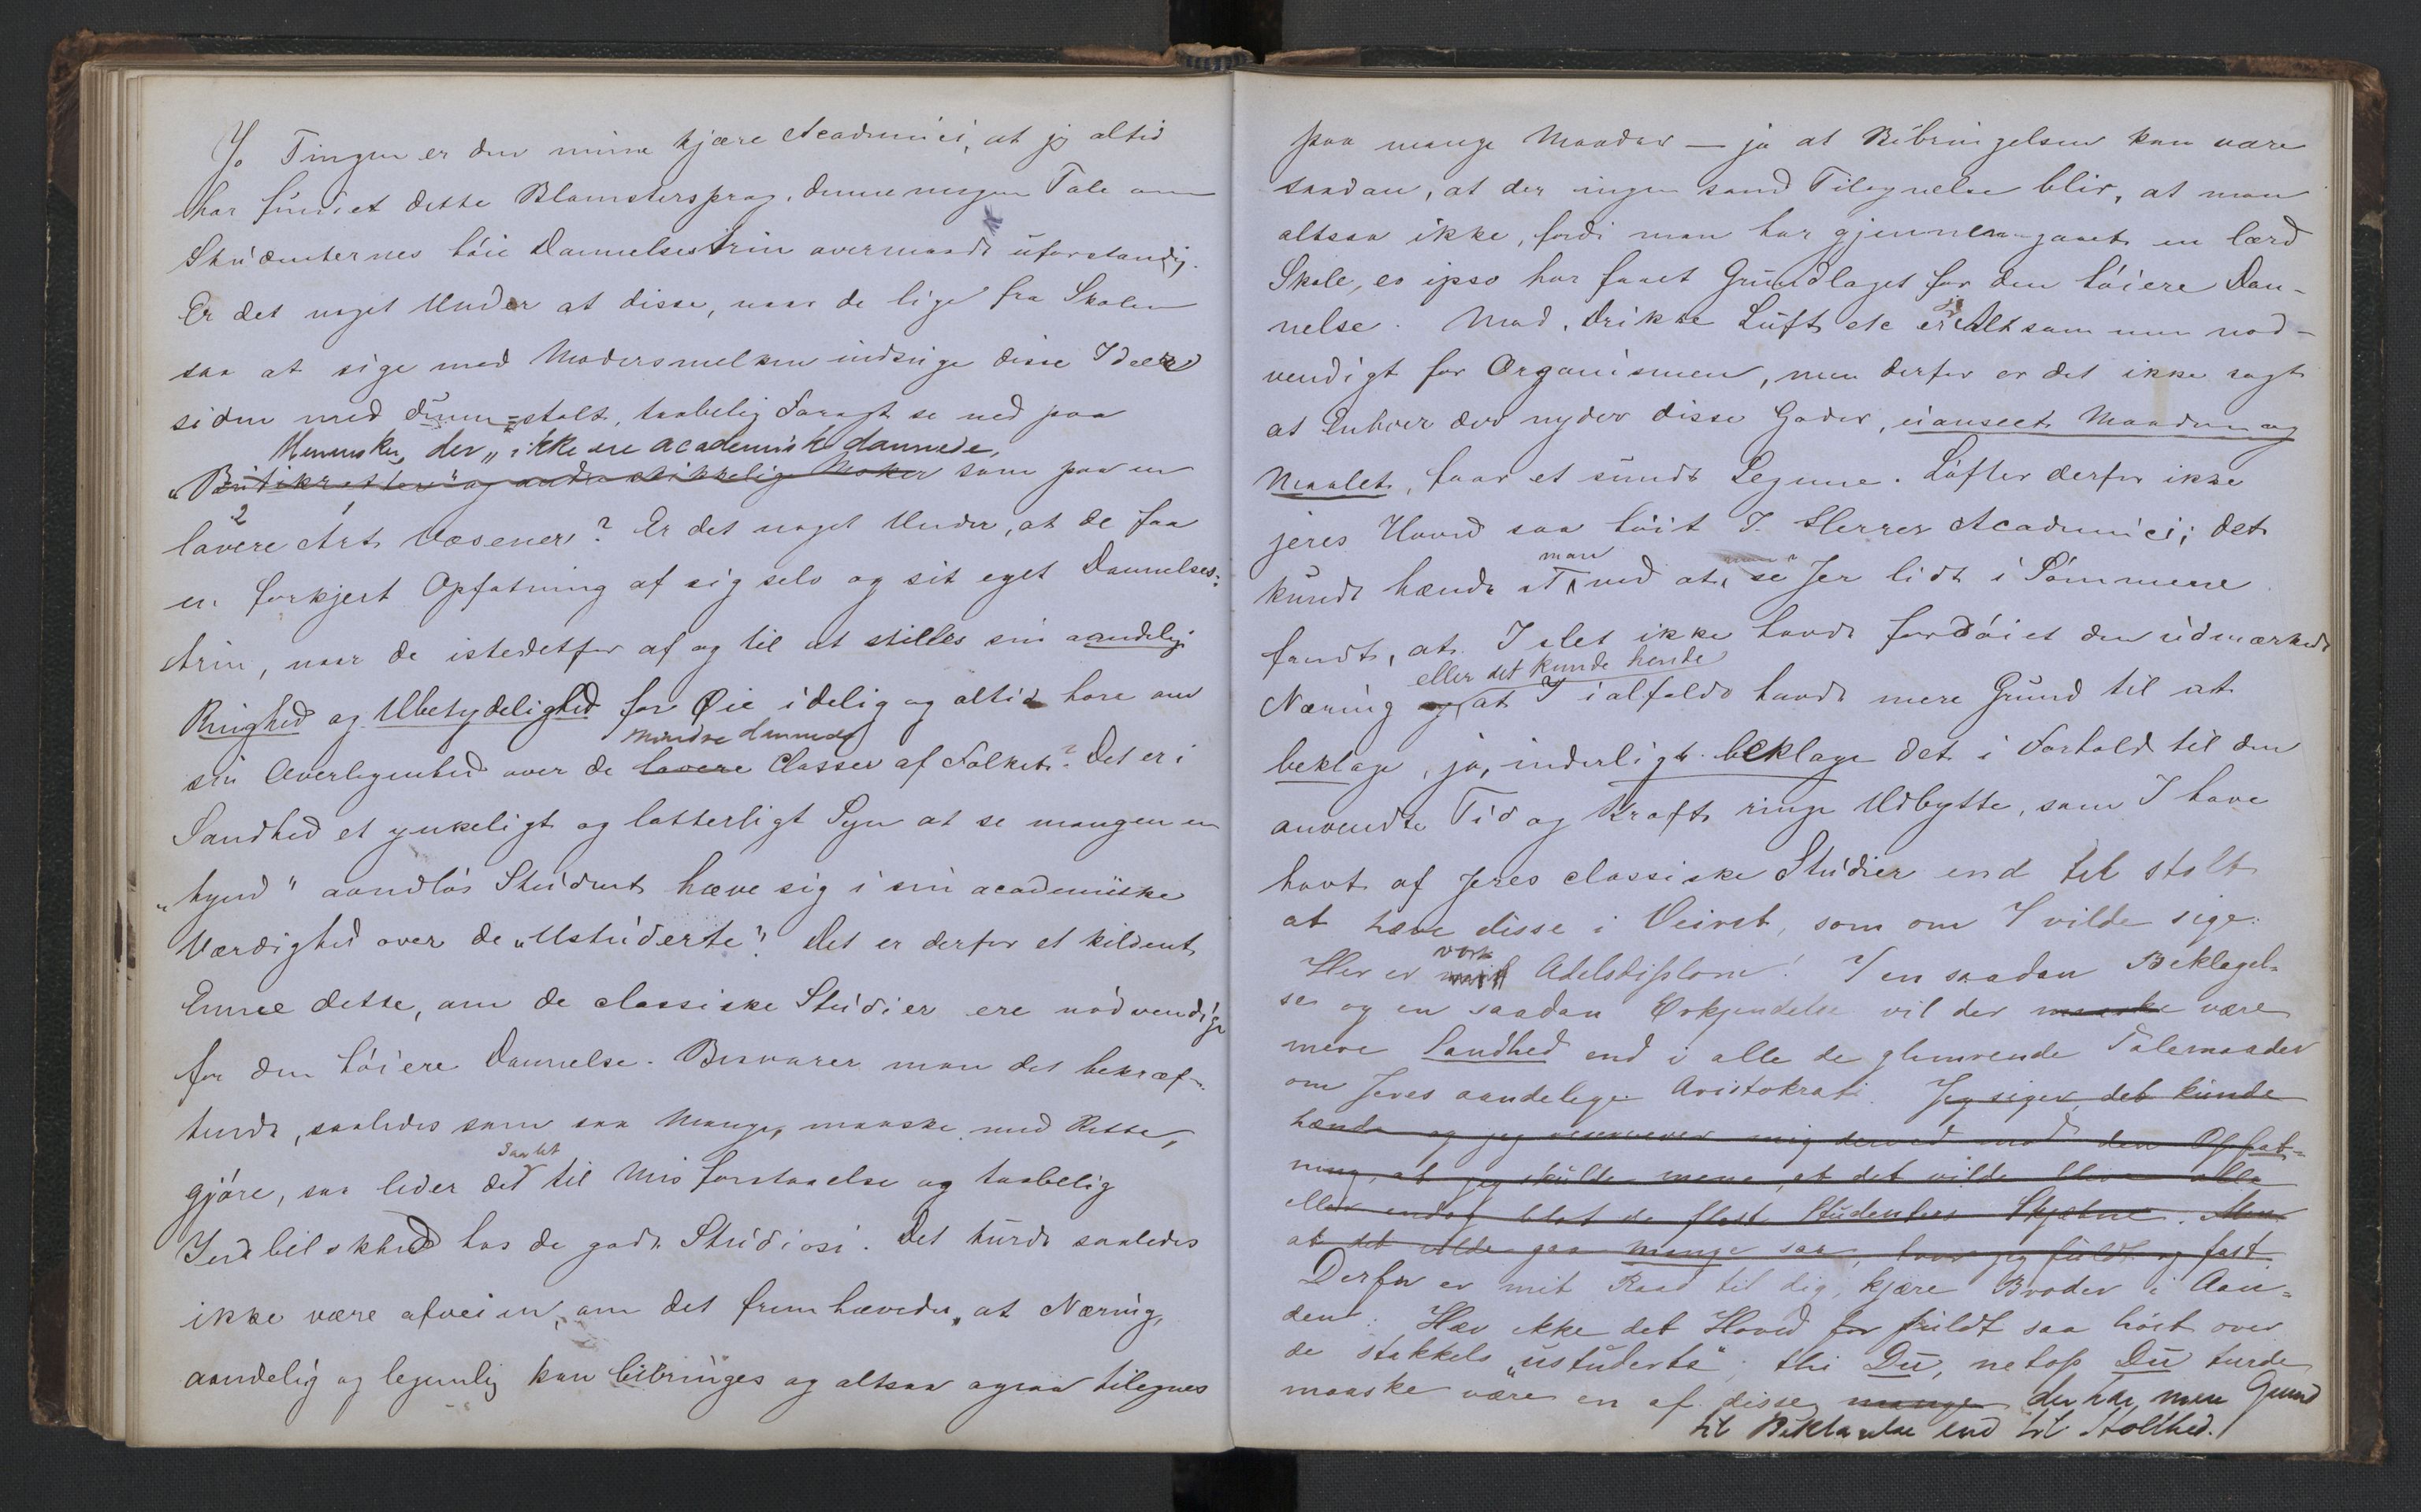 Jo Tingen er den mine kjære Academici, at jeg altid
har fundet dette Blomstersprog, denne megen Tale om
Studenternes høie Dannelsestrin overmaade uforstandig.
Er det noget Under at disse, naar de lige fra Skolen
saa at sige med Modersmelken indsuge disse Ideer
siden med dum-stolt, taabelig Foragt se ned paa
Mennesker, der „ikke ere academisk dannede,
„Butikrotter" og andre skikkelige som paa en
lavere Art Væsener? Er det noget Under, at de faa
en forkjert Opfatning af sig selv og sit eget Dannelses-
trin, naar de istedetfor af og til at stilles sin aandelige
Ringhed og Ubetydelighed for Øie idelig og altid høre om
mindre dannede
sin Overlegenhed over de lavere Classer af Folket? Det er i
Sandhed et ynkeligt og latterligt Syn at se mangen en
„hyul" aandløs Student hæve sig i sin academiske
Værdighed over de „Ustuderte". Det er derfor et kildent
Emne dette, om de classiske Studier ere nødvendige
for den høiere Dannelse. Besvarer man det bekræf-
tende, saaledes som saa Mange, maaske med Rette,
saa let
gjøre, saa leder det til Misforstaaelse og taabelig
Indbilskhed hos de gode Studiosi. Det turde saaledes
ikke være afveien, om det fremhævedes, at Næring,
aandelig og legemlig kan bibringes og altsaa ogsaa tilegnes
paa mange Maader — ja at Bibringelsen kan være
saadan, at der ingen sand Tilegnelse blir, at man
altsaa ikke, fordi man har gjennemgaaet en lærd
Skole, eo ipso har faaet Grundlaget for den høiere Dan-
nelse. Mad, Drikke Luft etc er jo Altsammen nød-
vendigt for Organismen, men derfor er det ikke sagt
at Enhver der nyder disse Goder, uanseet Maaden og
Maalet, faar et sundt Legeme. Løfter derfor ikke
jeres Hoved saa høit I Herrer Academici; det
man
kunde hænde at ved at se Jer lidt i Sømmene
fandt, at I slet ikke havde fordøiet den udmærkede
eller det kunde hænde
Næring og at I ialfald havde mere Grund til at
beklage, ja, inderligt beklage det i Forhold til den
anvendte Tid og Kraft ringe Udbytte, som I have
havt af Jeres classiske Studier end til stolt
at hæve disse i Veiret, som om I vilde sige:
vort
Her er Adelsdiplom! I en saadan Beklagel-
se og en saadan Erkjendelse vil der maaske være
mere Sandhed end i alle de glimrende Talemaader
om Jeres aandelige Aristokrati. Jeg siger det kunde
hænde og jeg reserverer mig derved mod den Opfat-
ning, at jeg skulde mene, at det vilde blive alle
eller endog blot de fleste Studenters Skjæbne. Men
at det vilde gaa mange saa, tror jeg fuldt og fast.
Derfor er mit Raad til dig, kjære Broder i Aan-
den: Hæv ikke dit Hoved for fuldt saa høit over
de stakkels „ustuderte"; thi Du, netop Du turde
maaske være en af disse mange der har mere Grund
til Beklagelse end til Stolthed.